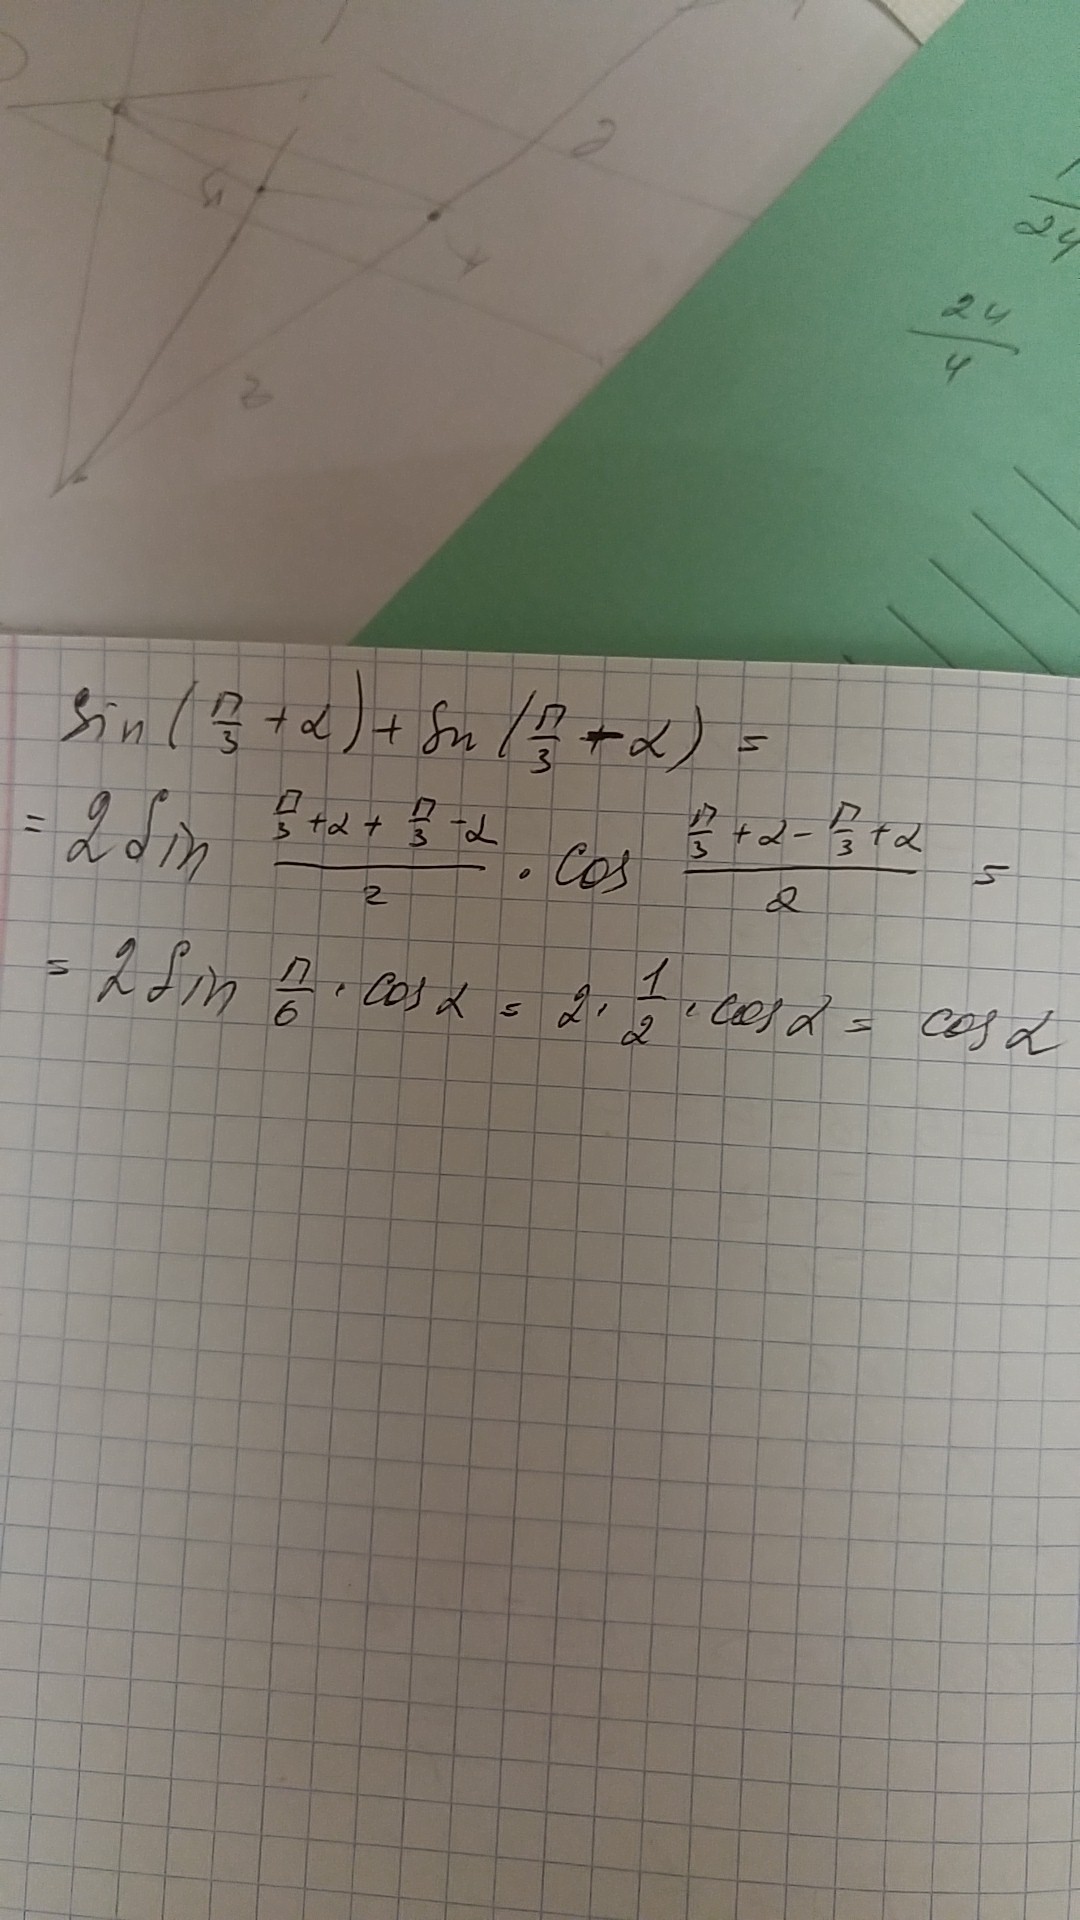 24
24
4
sin(π/3 + α) + sin(π/3 - α) =
= 2 sin (π/3 + α + π/3 - α)/2 · cos (π/3 + α - π/3 + α)/2 =
= 2 sin π/6 · cos α = 2 · 1/2 · cos α = cos α